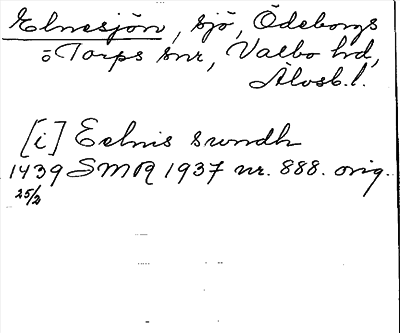 Elnesjön, sjö, Ödeborgs
o Torps snr, Valbo hd,
Älvsb.l.
[i] Eelnis swndh
1439 SMR 1937 nr. 888. orig.
25/2